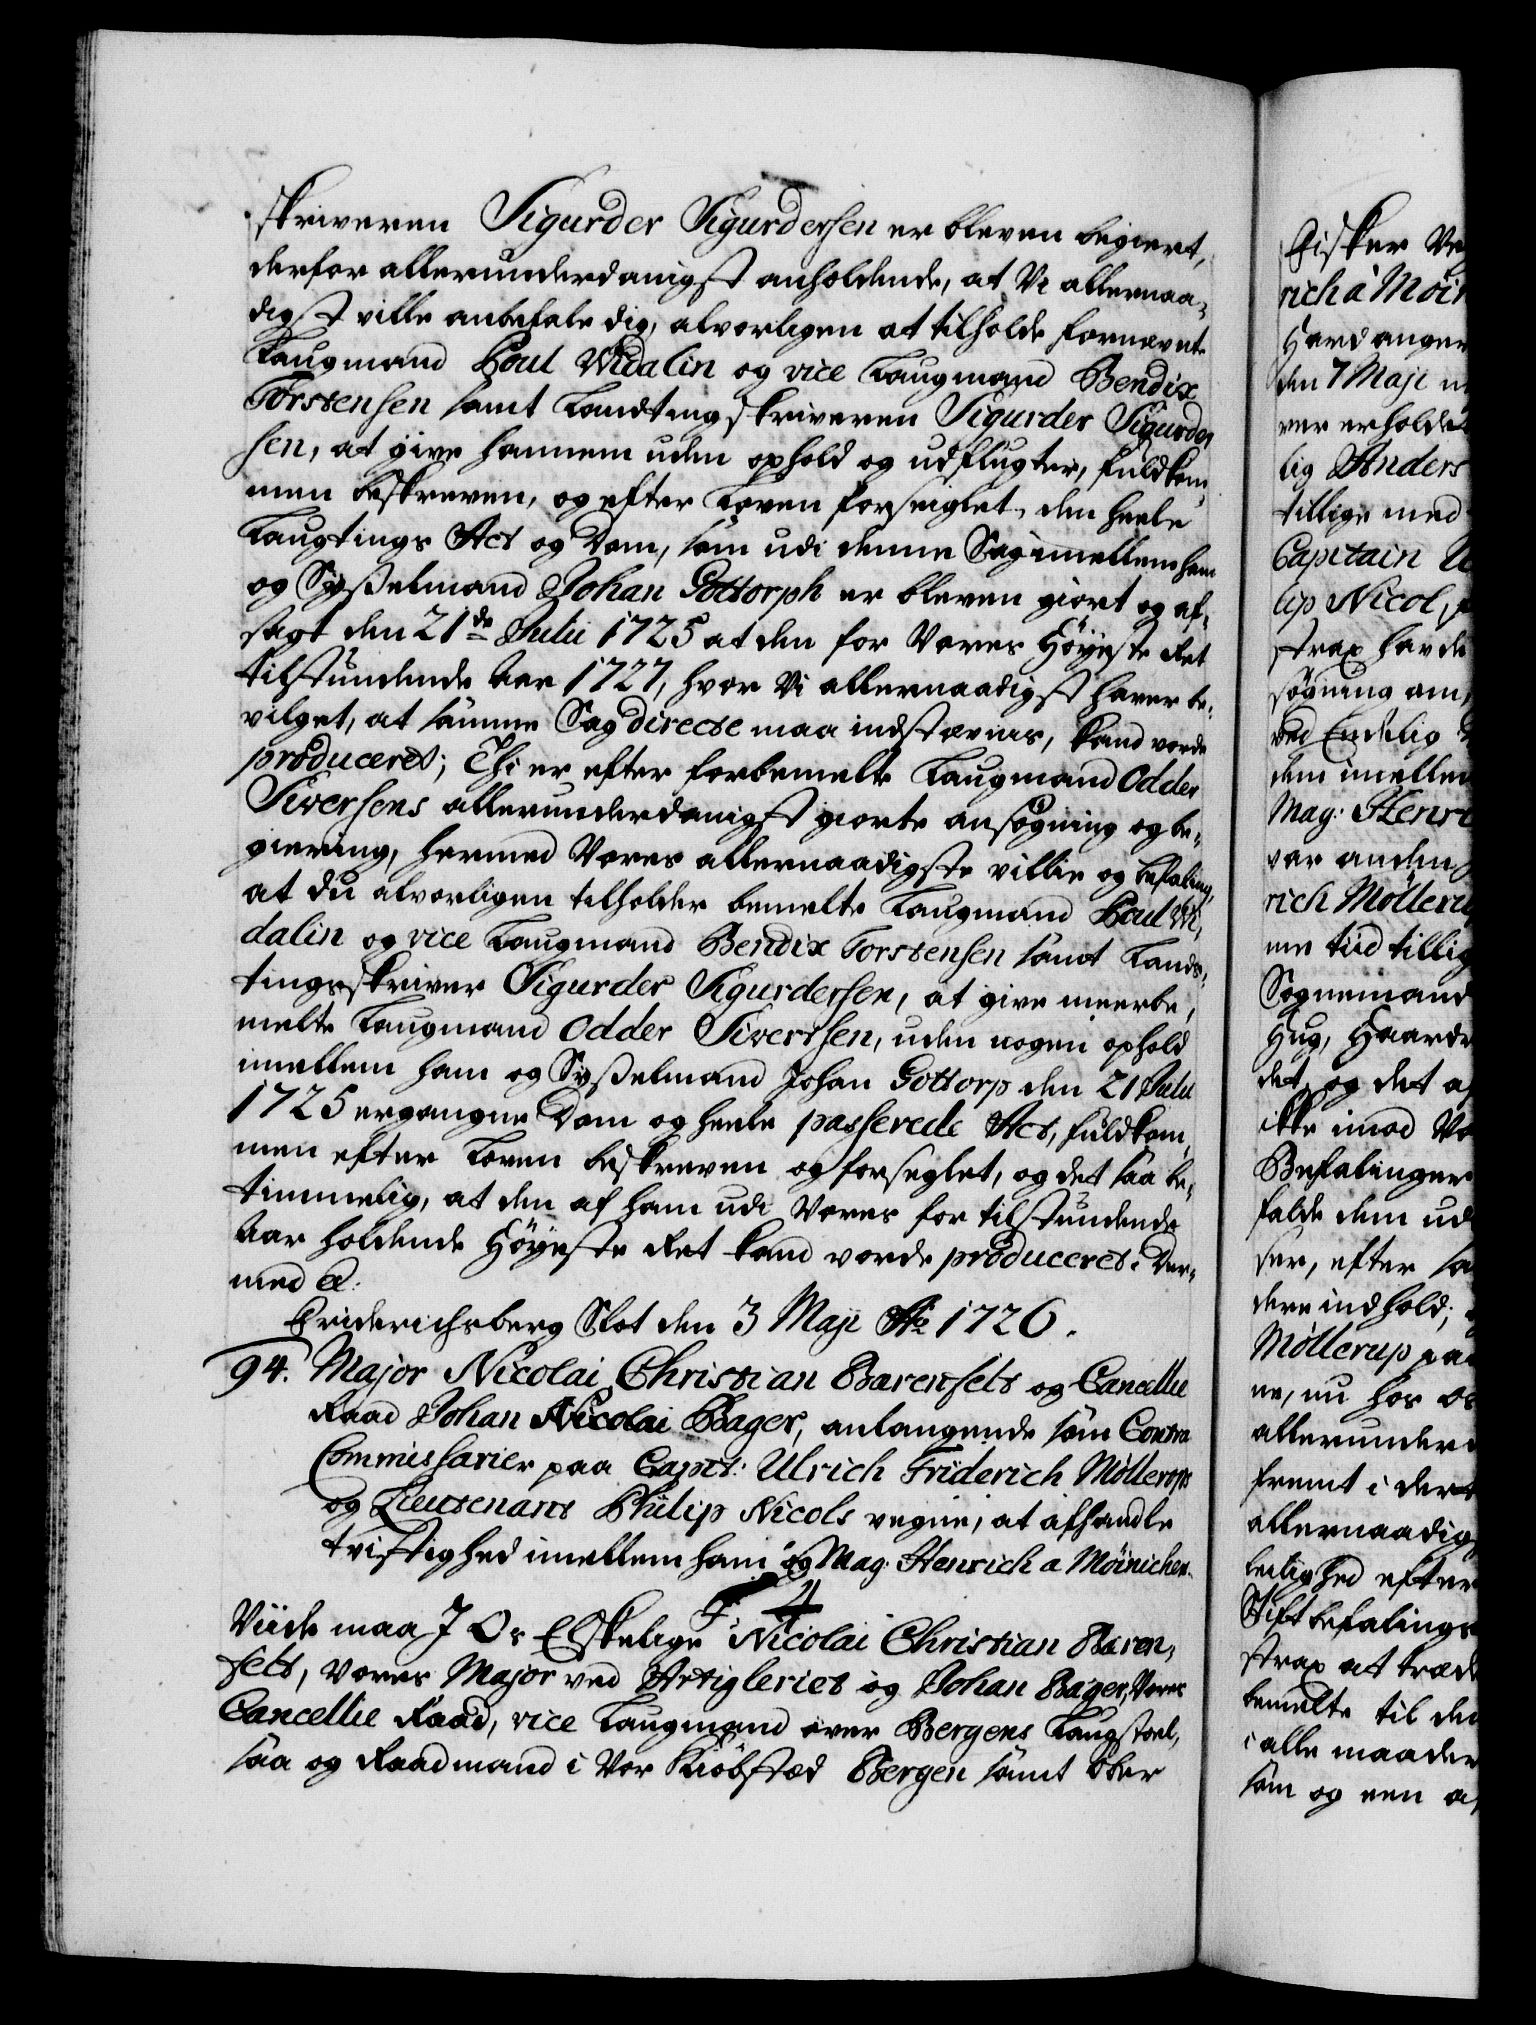 skriveren Sigurder Sigurdersen er bleven begiert,
derfor allerunderdanigst anholdende, at Vi allernaa-
digst ville anbefale dig, alvorligen at tilholde fornævnte
Laugmand Poul Widalin og vice Laugmand Bendix
Torstensen samt Landtingskriveren Sigurder Sigurder
sen, at give hannem uden ophold og udflugter, fuldkom-
men beskreven, og efter Loven forseiglet, den heele
Laugtings Act og Dom, som udi denne Sag imellem ham
og Sysselmand Johan Gottorph er bleven giort og af-
sagt den 21de Julii 1725 at den for Vores Høyeste Ret
tilstundende Aar 1727, hvor Vi allernaadigst haver be-
vilget, at samme Sag directe maa indstævnes, kand vorde
produceret; Thi er efter forbemelte Laugmand Odder
Siversens allerunderdanigst giorte ansøgning og be-
giering, hermed Vores allernaadigste villie og befaling,
at du alvorligen tilholder bemelte Laugmand Poul Wi-
dalin og vice Laugmand Bendix Torstensen samt Lands-
tingsskriver Sigurder Sigurdersen, at give meerbe-
melte Laugmand Odder Sivertsen, uden nogen ophold
imellem ham og Sysselmand Johan Gottorp den 21 Julii
1725 ergangne Dom og heele passerede Act, fuldkom-
men efter Loven beskreven og forseglet, og det saa be-
timmelig, at den af ham udi Vores for tilstundende
Aar holdende Høyeste Ret kand vorde produceret. Der-
med &.
Friderichsberg Slot den 3 Maji Ao 1726.
94. Major Nicolai Christian Barenfelt og Cancellie
Raad Johan Nicolai Bager, anlangende som Contra
Commissarier paa Capit: Ulrich Friderich Møllerups
og Lieutenant Philip Nicols vegne, at afhandle
tvistighed imellem ham og Mag: Henrich a Møinichen.
F. 4
Viide maa I Os Elskelige Nicolai Christian Baren-
felt, Vores Major ved Artigleriet og Johan Bager, Vores
Cancellie Raad, vice Laugmand over Bergens Laugstoel,
saa og Raadmand i Vor Kiøbstæd Bergen samt Over
Fisker Ve
rich a Möin
Hardanger
den 7 Maji
ver erholdet
lig Anders
tillige med
Capitain U
lip Nicol,
strax havde
søgning om,
ved Endelig
dem imellem
Mag: Henri
var anden
rich Mølleru
me tiid tillig
Sognemand
Hug, Haarde
det, og det a
ikke imod Vo
Befalinger
falde dem ud
ser, efter sa
dere indhold;
Møllerup paa
ne, nu hos os
allerunder
fremt i dert
allernaadig
leilighed efter
Stiftbefalings
strax at træde
bemelte til den
i alle maader
som og een a